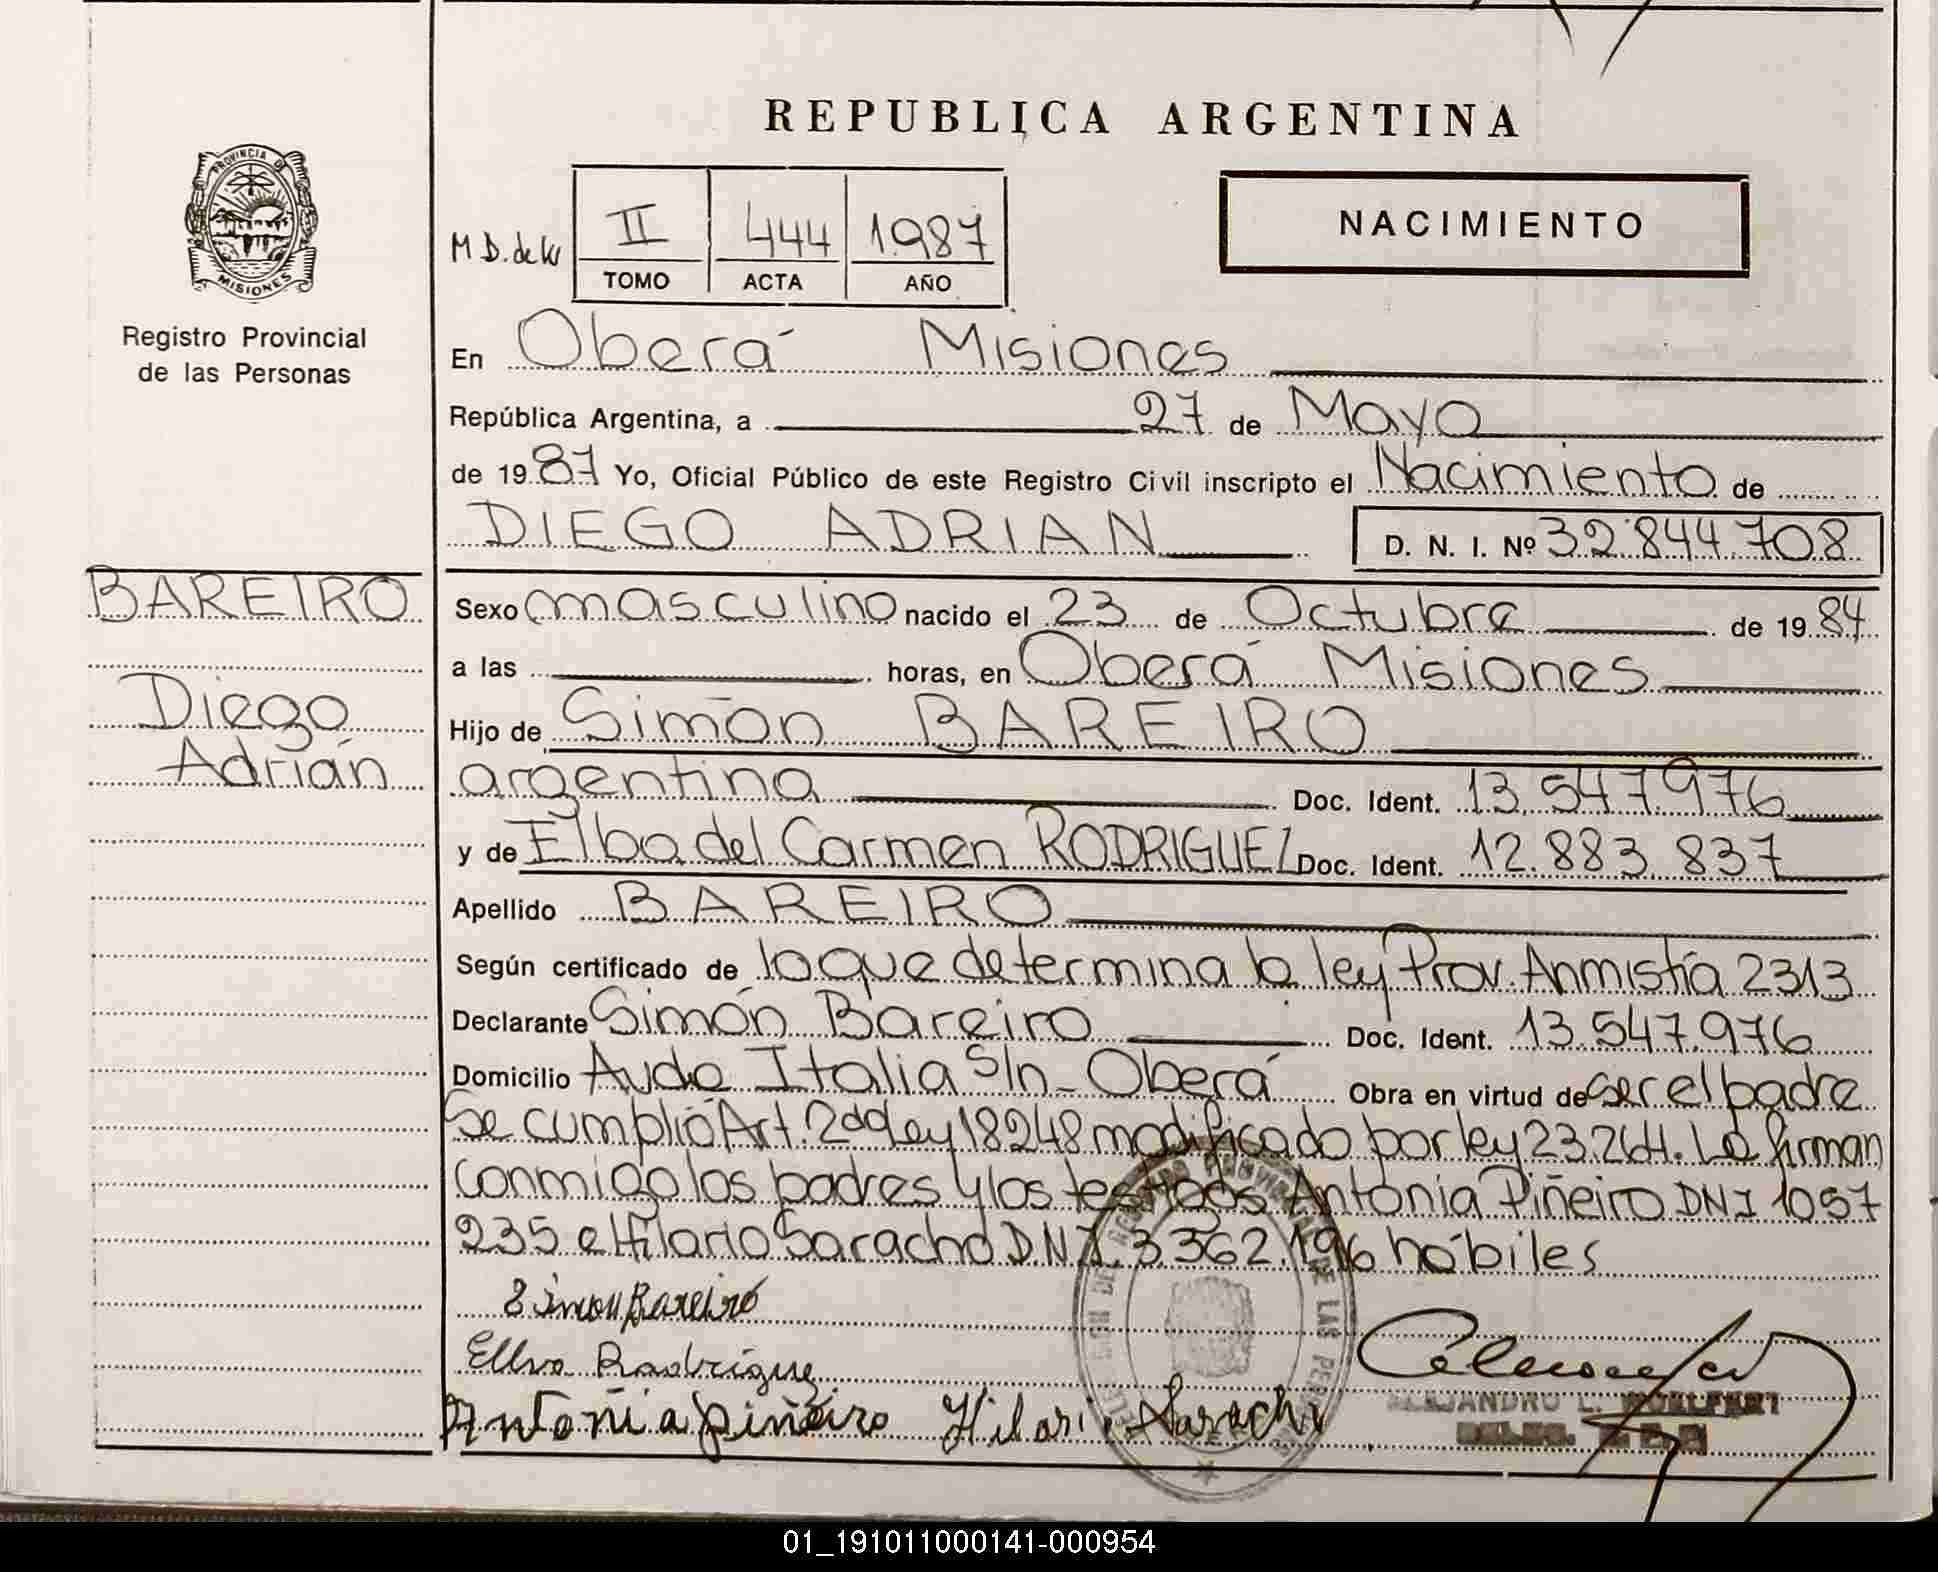 REPUBLICA ARGENTINA
PROVINCIA DE
MISIONES
Registro Provincial
de las Personas
M D. de
II 444 1987
TOMO ACTA AÑO
NACIMIENTO
En Oberá Misiones
República Argentina, a 27 de Mayo
de 19 87 Yo, Oficial Público de este Registro Civil inscripto el Nacimiento de
DIEGO ADRIAN D. N. I. Nº 32.844.708
BAREIRO
Diego
Adrián
Sexo masculino nacido el 23 de Octubre de 19 84
a las horas, en Oberá Misiones
Hijo de Simón BAREIRO
argentina Doc. Ident. 13.547.976
y de Elba del Carmen RODRIGUEZ Doc. Ident. 12.883.837
Apellido BAREIRO
Según certificado de lo que determina la ley Prov. Anmistía 2313
Declarante Simón Bareiro Doc. Ident. 13.547.976
Domicilio Avda Italia S/n - Oberá Obra en virtud de ser el padre
Se cumplió Art. 2 ley 18248 modificado por ley 23.264. La firman
conmigo los padres y los testigos Antonia Piñeiro DNI 1057
235 e Hilario Saracho D.N.I. 3.362.196 hábiles
Simon Bareiro
Elba Rodriguez
Antonia piñeiro Hilari Saracho
ALEJANDRO L.
01_191011000141-000954